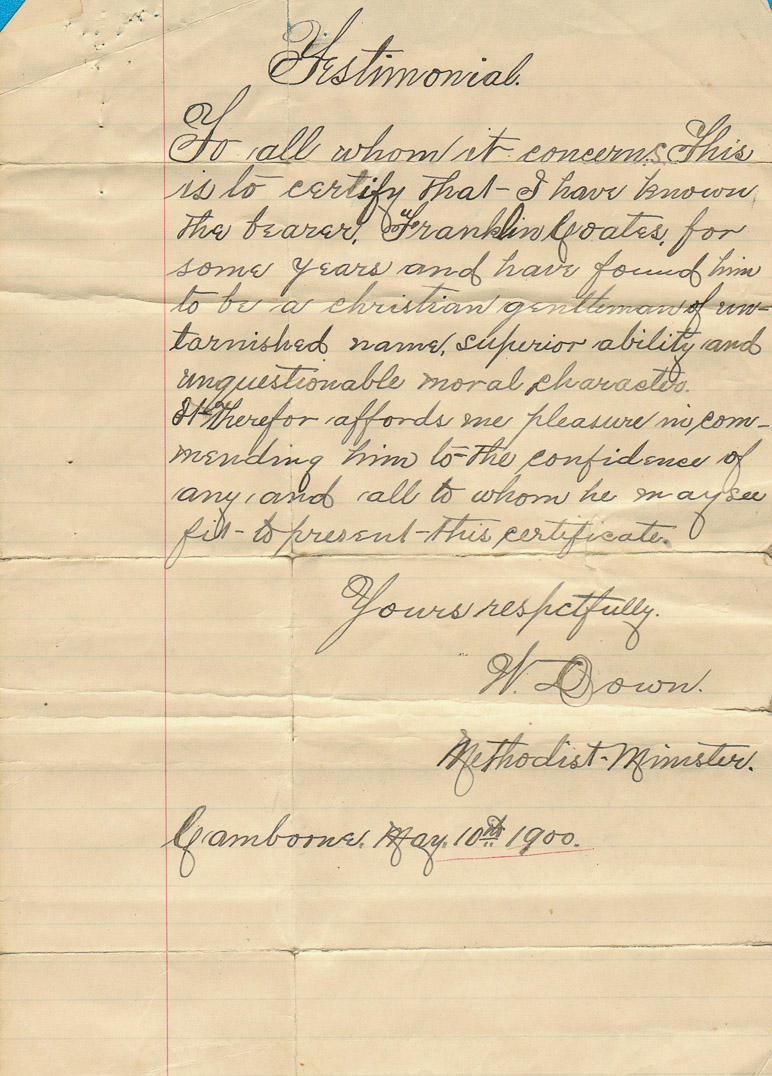 Testimonial.
To all whom it concerns, This
is to certify that I have known
the bearer, Franklin Coates, for
some years and have found him
to be a christian gentleman of un-
tarnished name, superior ability and
unquestionable moral character.
It therefor affords me pleasure in com-
mending him to the confidence of
any and all to whom he may see
fit to present this certificate.
Yours respctfully.
W. Down.
Methodist Minister.
Camborne, May, 10th 1900.